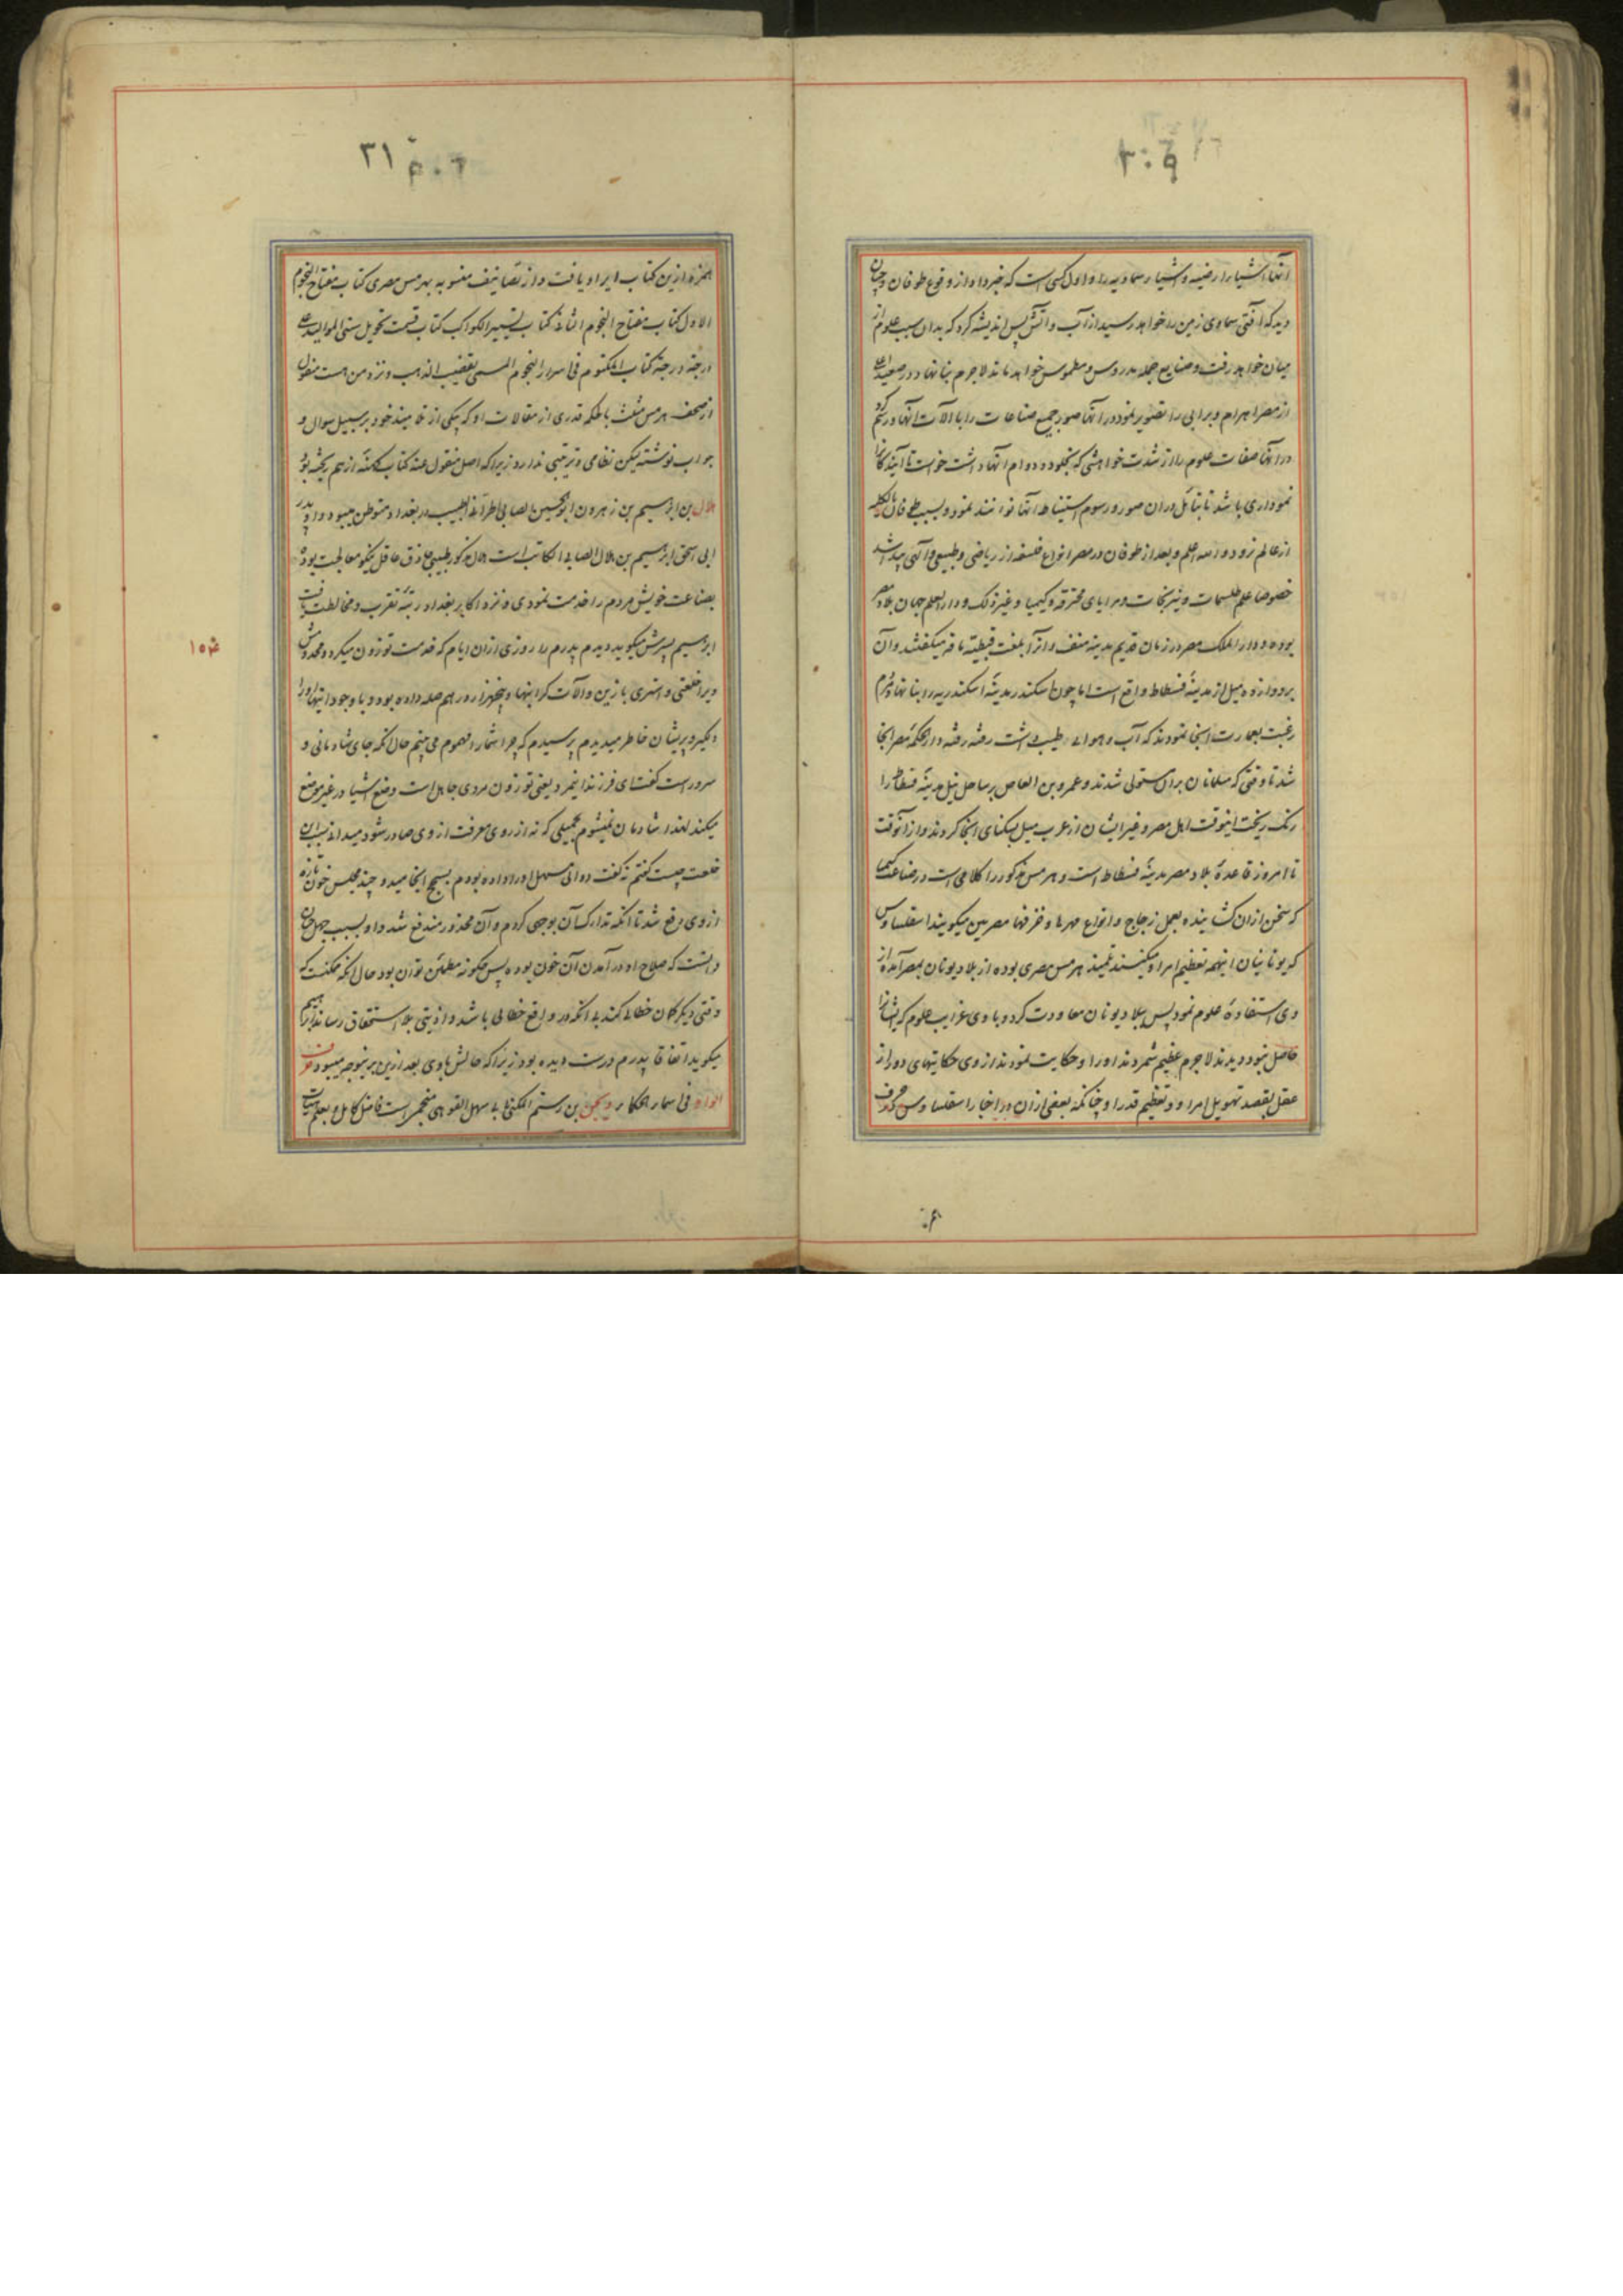 ۲۰۹
آنها اشیاء ارضیه و اشیاء سماویه را و اول کسی است که خبر داد از وقوع طوفان و چنان
دید که آفتی سماوی زمین را خواهد رسید از آب و آتش پس اندیشه کرد که بدان سبب علوم از
میان خواهد رفت و صنایع جمله مدروس و مطموس خواهد ماند لاجرم بنا نهاد در صعید اعلی
از مصر اهرام و برابی را و تصویر نمود در آنها صور جمیع صناعات را با آلات آنها و رسم کرد
در آنها صفات علوم را از شدت خواهشی که بخلود و دوام آنها داشت خواست تا آیندگانرا
نموداری باشد تا بتأمل در آن صور و رسوم استنباط آنها توانند نمود و بسبب طوفان بالکلیه
از عالم نرود و الله اعلم و بعد از طوفان در مصر انواع فلسفه از ریاضی و طبیعی و آلهی پیدا شد
خصوصا علم طلسمات و نیرنجات و مرایای محترقه و کیمیا و غیر ذلک و دار العلم جهان بلاد مصر
بوده و دار الملک مصر در زمان قدیم مدینه منف و آنرا بلغت قبطیه مافه میگفتند و آن
بر دوازده میل از مدینهٔ فسطاط واقع است اما چون اسکندر مدینهٔ اسکندریه را بنا نهاد مردم
رغبت بعمارت آنجا نمودند که آب و هوای طیب داشت رفته رفته دار الحکمهٔ مصر آنجا
شد تا وقتی که مسلمانان بر آن مستولی شدند و عمرو بن العاص بر ساحل نیل مدینهٔ فسطاط را
رنگ ریخت اینوقت اهل مصر و غیر ایشان از عرب میل بسکنای آنجا کردند و از آنوقت
تا امروز قاعدهٔ بلاد مصر مدینهٔ فسطاط است و هرمس مذکور را کلامی است در صناعت کیمیا
که سخن از آن کشاینده بعمل زجاج و انواع مهرها و خزفها مصریین میگویند اسقلبیاوس
که یونانیان اینهمه تعظیم امر او میکنند تلمیذ هرمس مصری بوده از بلاد یونان بمصر آمده از
وی استفادهٔ علوم نمود پس ببلاد یونان معاودت کرد و با وی غرایب علوم که ایشانرا
حاصل نبود دیدند لاجرم عظیم شمردند او را و حکایت نمودند از وی حکایتهای دور از
عقل بقصد تهویل امر او و تعظیم قدر او چنانکه بعضی از آن در اخبار اسقلبیاوس
۲۱
همزه ازین کتاب ایراد یافت و از تصانیف منسوبه بهرمس مصری کتاب مفتاح النجوم
الاول کتاب مفتاح النجوم الثانی کتاب تسییر الکواکب کتاب قسمت تحویل سنی الموالید علی
درجة درجة کتاب المکتوم فی اسرار النجوم المسمی بقضیب الذهب و نزد من هست منقول
از صحف هرمس مثلث بالحکمه قدری از مقالات او که یکی از تلامیذ خود بر سبیل سوال و
جواب نوشته لیکن نظامی و ترتیبی ندارد زیرا که اصل منقول عنه کتاب کهنهٔ از هم ریخته بود
هلال بن ابراهیم بن زهرون ابو الحسین الصابی الحرانی الطبیب در بغداد متوطن میبود و او پدر
ابی اسحق ابراهیم بن هلال الصابی الکاتب است هلال مذکور طبیبی حاذق عاقل نیکو معالجت بوده
بصناعت خویش مردم را خدمت نمودی و نزد اکابر بغداد رتبهٔ تقرب و مخالطت یافت
ابراهیم پسرش میگوید دیدم پدرم را روزی از آن ایام که خدمت توزون میکرد و مخدومش
ویرا خلعتی و استری با زین و آلات گرانبها و پنجهزار درهم صله داده بود و با وجود اینها او را
دلگیر و پریشان خاطر میدیدم پرسیدم که چرا شما را مهموم می بینم حال آنکه جای شادمانی و
سرور است گفت ای فرزند اینمرد یعنی توزون مردی جاهل است وضع اشیا در غیر موضع
میکند لهذا شادمان نمیشوم بجمیلی که نه از روی معرفت از وی صادر شود میدانی سبب این
خلعت چیست گفتم نه گفت دوائی مسهل او را داده بودم بسحج انجامید و چند مجلس خون تازه
از وی دفع شد تا آنکه تدارک آن بوجهی کردم و آن محذور مندفع شد و او بسبب جهل چنان
دانست که صلاح او در آمدن آن خون بوده پس چگونه مطمئن توان بود حال آنکه ممکنست که
وقتی دیگر گمان خطائی کند بی آنکه در واقع خطائی باشد و اذیتی بلا استحقاق رساند ابراهیم
میگوید اتفاقا پدرم درست دیده بود زیرا که حالش با وی بعد ازین بر همین وجه میبود حرف
الواو فی اسماء الحکماء ویجن بن رستم المکنی بابی سهل القوهی منجمی است فاضل کامل و بعلم هیئت